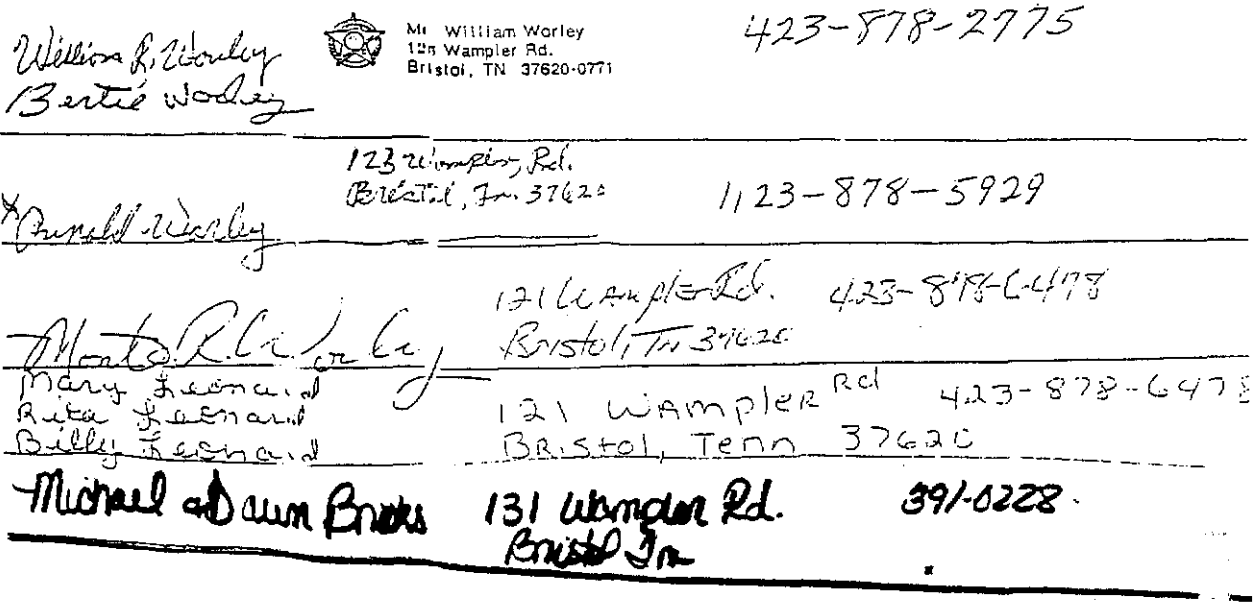 William R. Worley
Bertie Worley
Mr William Worley
Wampler Rd.
Bristol, TN 37620-0771
423-878-2775
123 Wampler Rd.
Bristol, Tn. 37620
Worley
123-878-5929
Monte R. Worley
121 Wampler Rd.
Bristol, TN 37620
423-878-6478
Mary Leonard
Rita Leonard
Billy Leonard
121 WAMPLER Rd
BRistol, Tenn 37620
423-878-6478
Michael & Dawn Brooks
131 Wampler Rd.
Bristol Tn
391-0228